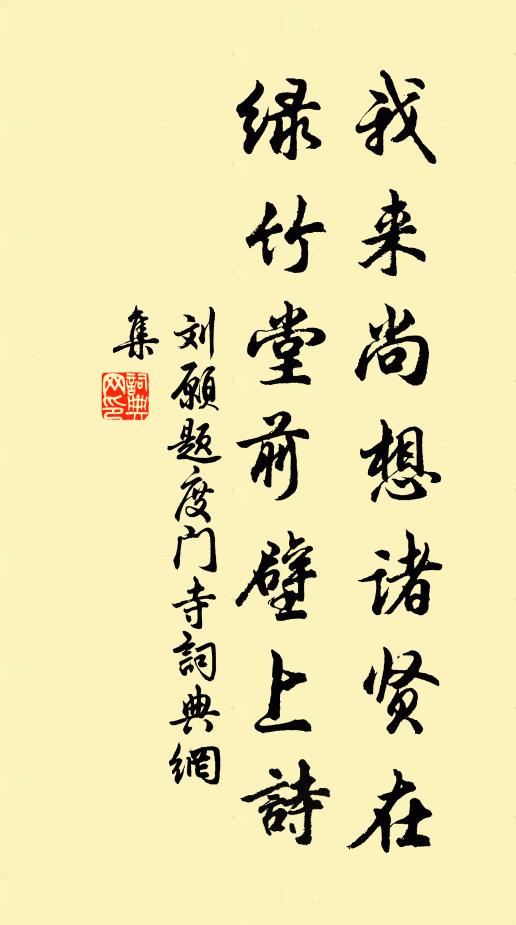 我来尚想诸贤在
绿竹堂前壁上詩
刘願题度门寺詞典網
集
詞典网印